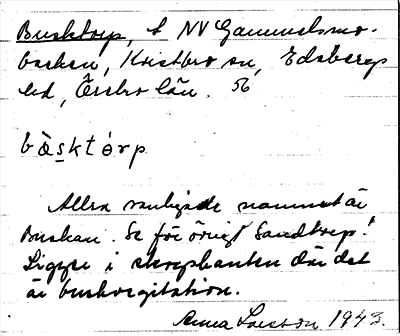 Busktorp, t NV Gammelsmo-
backen, Kvistbro sn, Edsbergs
hd, Örebro län. 56
bàs̱którp
Allra vanligaste namnet är
Buskan. Se för övrigt Sandtorp!
Ligger i skogskanten där det
är buskvegetation.
Anna Larsson 1943.